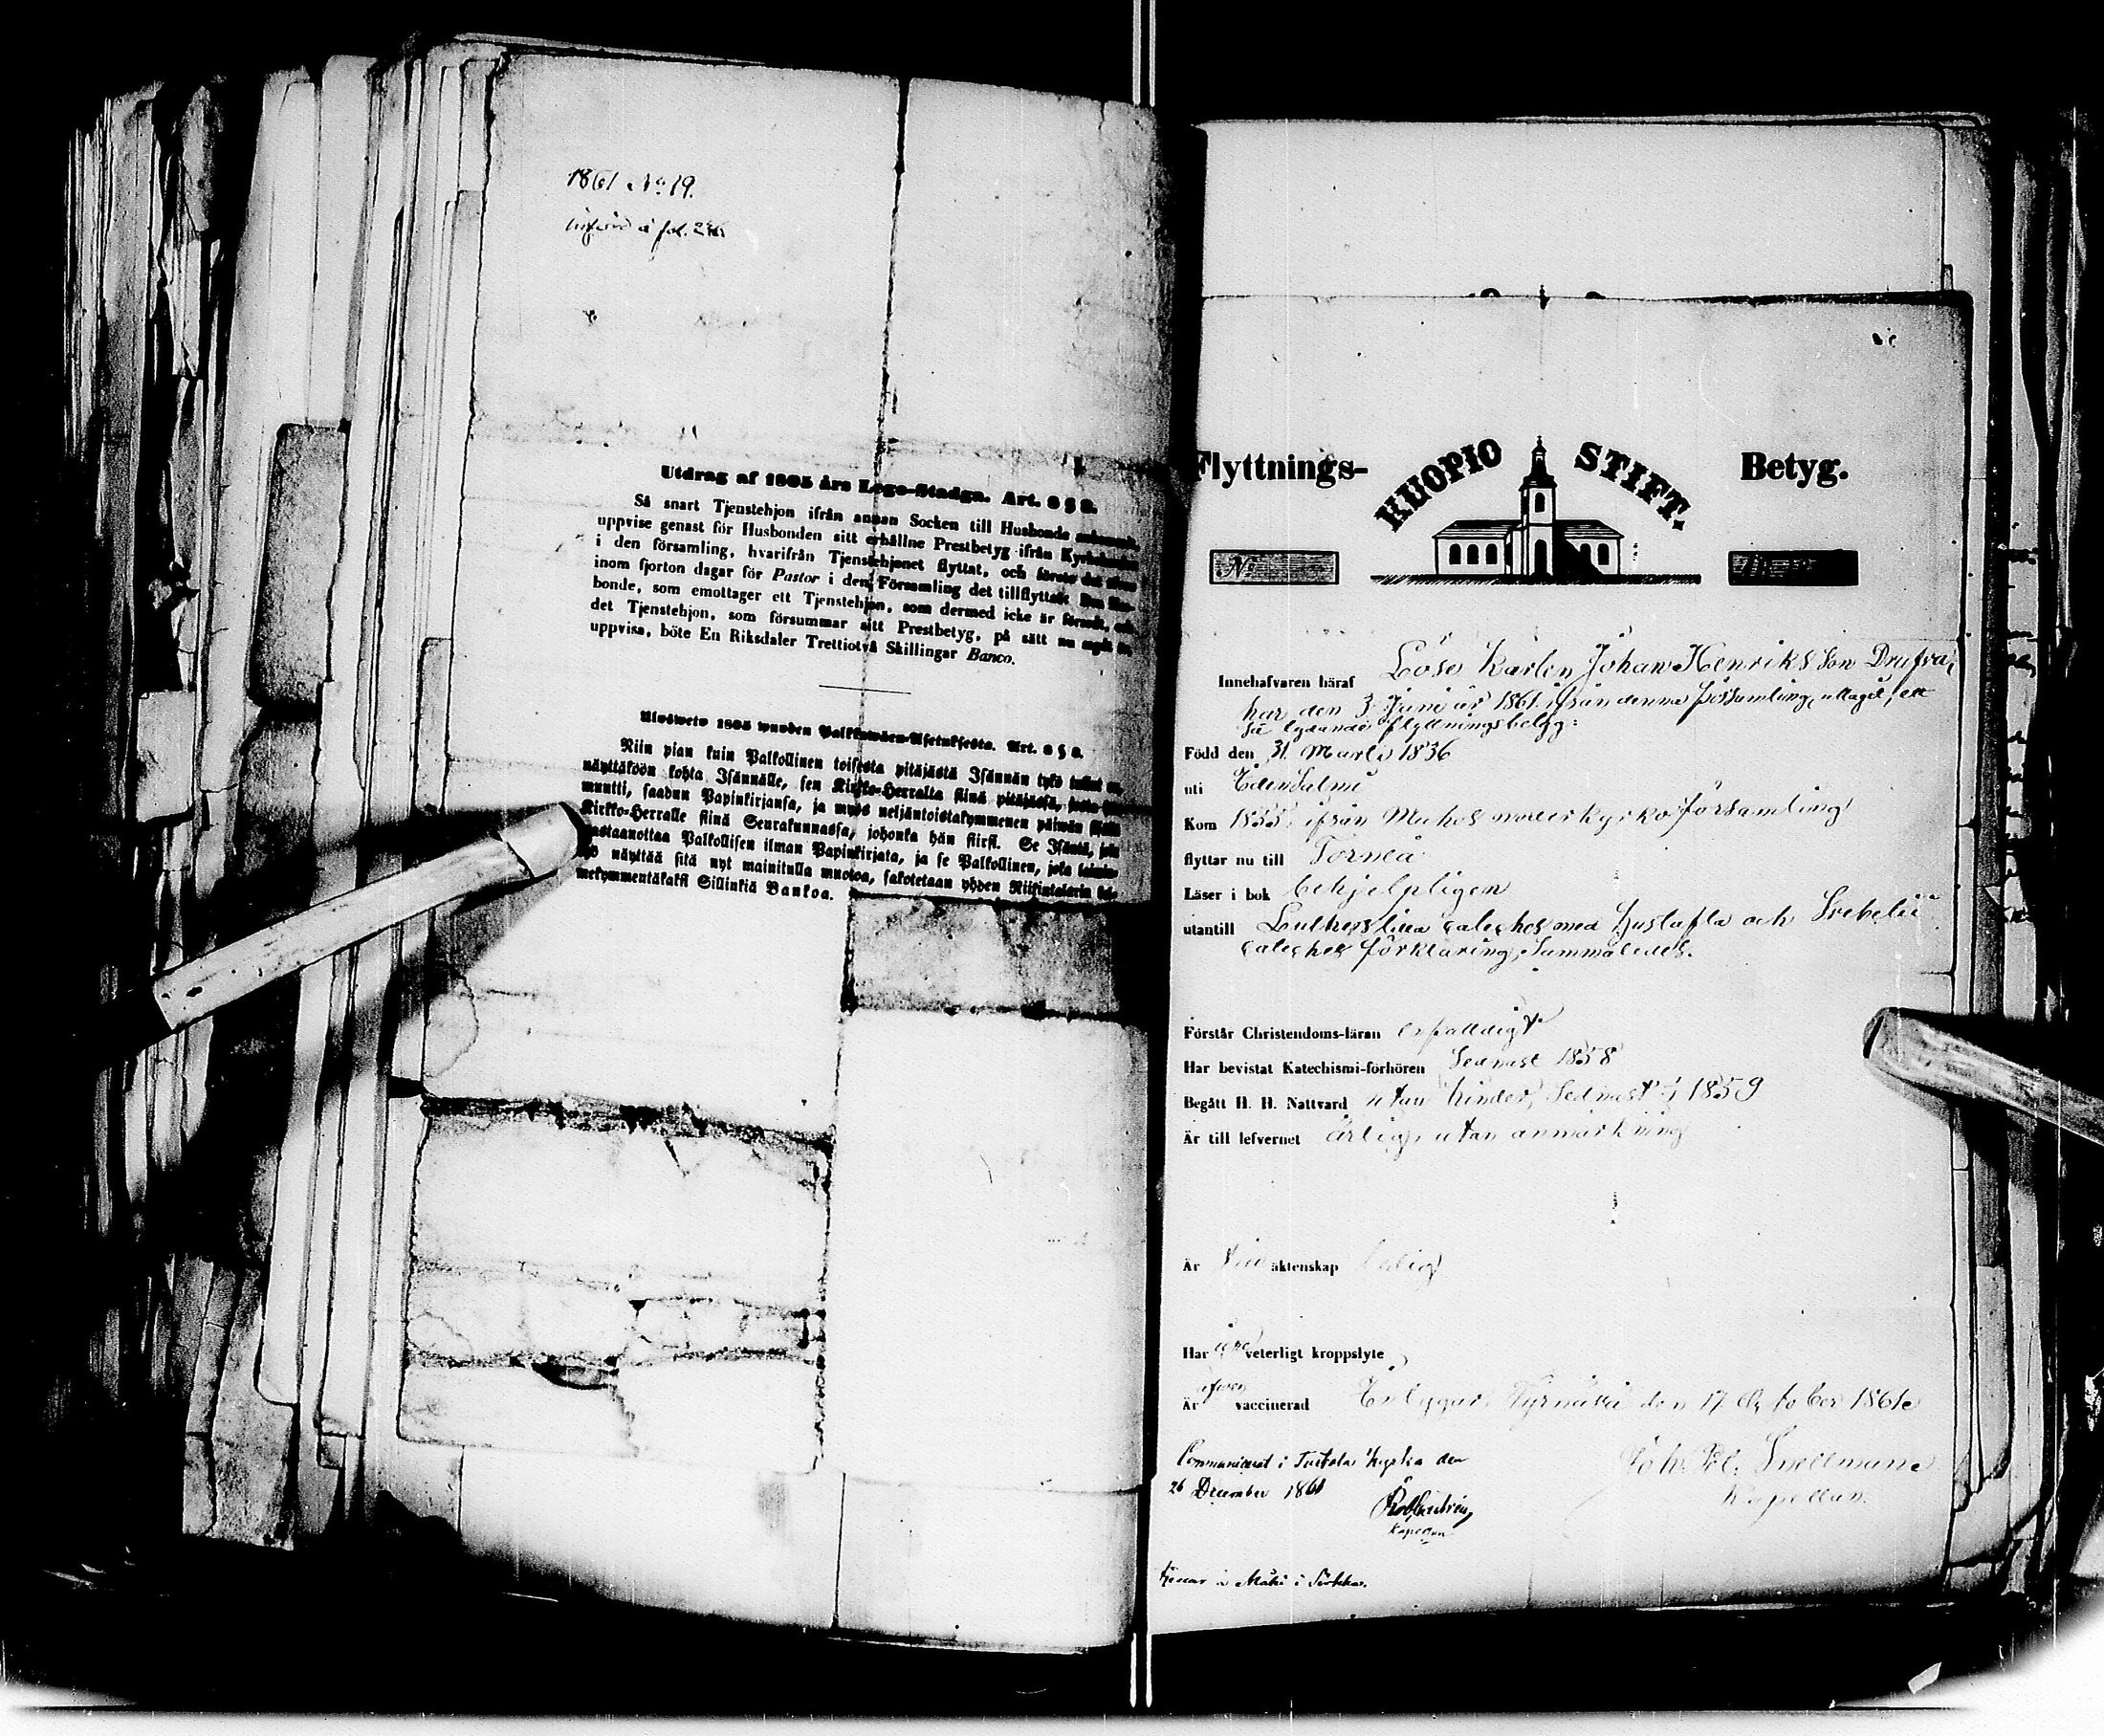 1861 No 19.
införd å fol. 246
Utdrag af 1805 års Lego-Stadga. Art. 8 § 2.
Så snart Tjenstehjon ifrån annan Socken till Husbonde
uppvise genast för Husbonden sitt erhållne Prestbetyg ifrån
i den församling, hvarifrån Tjenstehjonet flyttat, och
inom fjorton dagar för Pastor i den Församling det tillflyttat.
bonde, som emottager ett Tjenstehjon, som dermed icke är försedt,
det Tjenstehjon, som försummar att Prestbetyg, på sätt nu
uppvisa, böte En Riksdaler Trettiotvå Skillingar Banco.
Ulosweto 1805 wuoden Palkkawäen-Asetuksesta. Art. 8 § 2.
Niin pian kuin Palkollinen toisesta pitäjästä Isännän tykö tullut on,
näyttäköön kohta Isännälle, sen Kirkko-Herralta siinä pitäjässä,
muutti, saadun Papinkirjansa, ja myös neljäntoistakymmenen päiwän
Kirkko-Herralle siinä Seurakunnassa, johonka hän siirsi. Se Isäntä, joka
wastaanottaa Palkollisen ilman Papinkirjata, ja se Palkollinen, joka
näyttää sitä nyt mainitulla muotoa, sakotetaan yhden Riikintalarin
mekymmentäkaksi Sillinkiä Bankoa.
Flyttnings- KUOPIO STIFT. Betyg.
No
Innehafvaren häraf Löse Karlen Johan Henriks Son Drufva,
har den 3 Juni år 1861 ifrån denna församling uttagit, ett
så lydande flyttningsbetyg:
Född den 31 Martii 1836
uti Idensalmi
Kom 1855, ifrån Muhos moderkyrko församling
flyttar nu till Torneå
Läser i bok behjelpligen
utantill Lutherslilla cateches med hustafla och Svebelii
cateches förklaring, Sammaledes.
Förstår Christendoms-läran enfalldigt
Har bevistat Katechismi-förhören Sednast 1858
Begått H. H. Nattvard utan hinder, Sednast 1859
Är till lefvernet ärlig, utan anmärkning
Är till äktenskap ledig
Har veterligt kroppslyte
Är äfven vaccinerad Betygar. Tyrnävä den 17 October 1861
Communicerat i Turtola Kyrka den
26 December 1861
Joh. Snellman
Kapellan.
Kapellan
i Mäki i